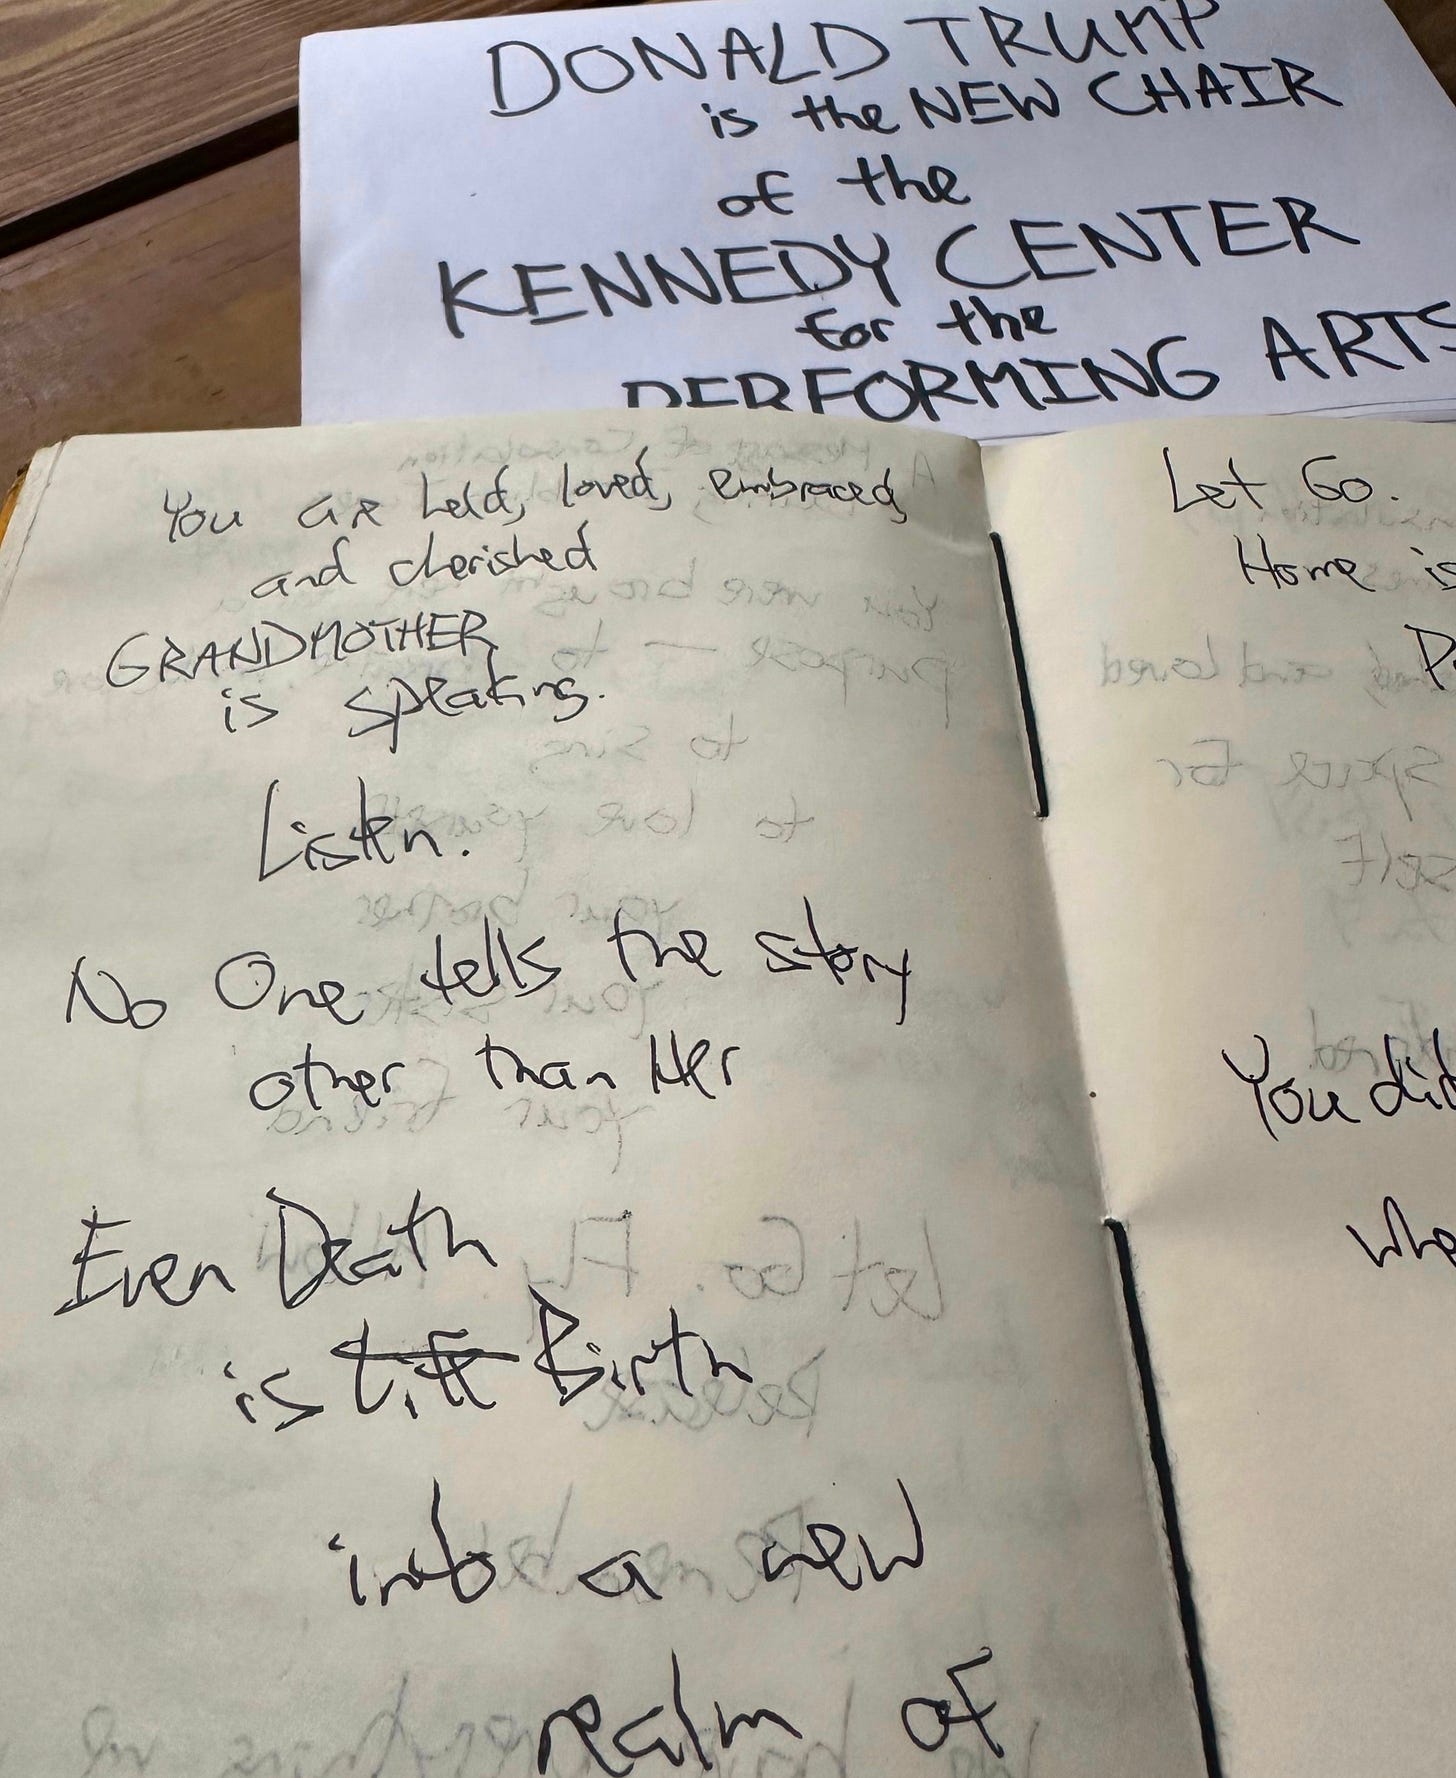 DONALD TRUMP
is the NEW CHAIR
of the
KENNEDY CENTER
for the
PERFORMING ARTS
You are held, loved, embraced,
and cherished
GRANDMOTHER
is speaking.
Listen.
No One tells the story
other than Her
Even Death
is Life Birth
into a new
realm of
Let Go.
Home is
You did